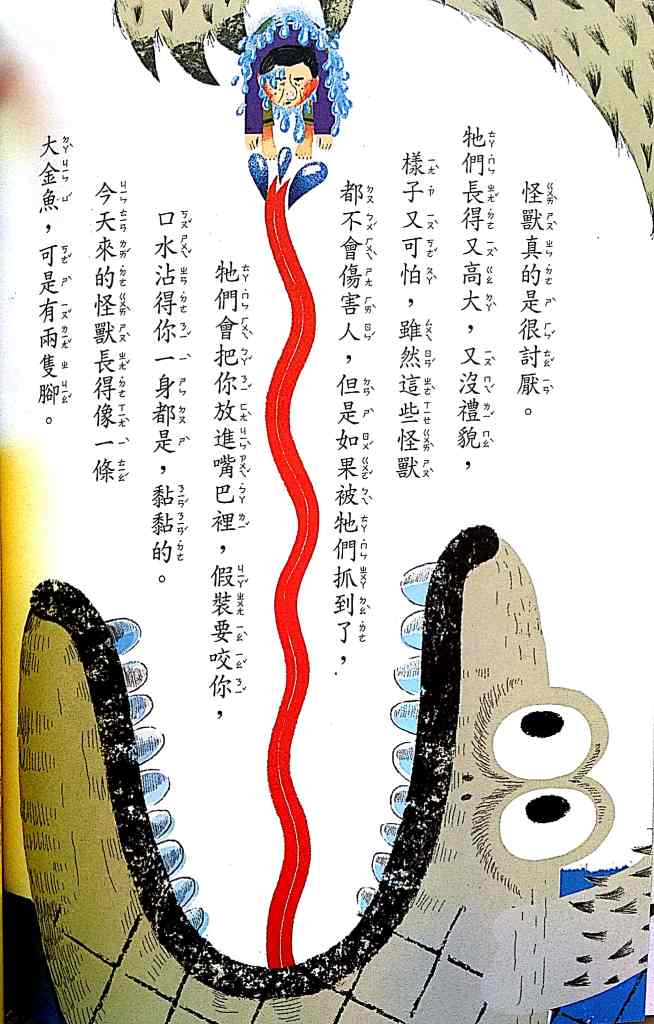 怪獸真的是很討厭。
牠們長得又高大，又沒禮貌，
樣子又可怕，雖然這些怪獸
都不會傷害人，但是如果被牠們抓到了，
牠們會把你放進嘴巴裡，假裝要咬你，
口水沾得你一身都是，黏黏的。
今天來的怪獸長得像一條
大金魚，可是有兩隻腳。